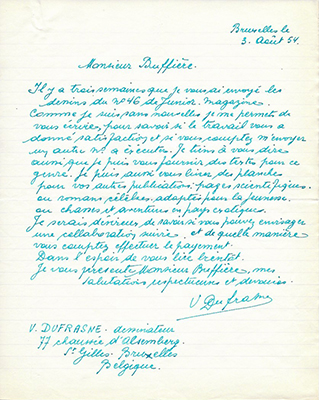 Bruxelles le
3. Août 54.
Monsieur Buffière.
Il y a trois semaines que je vous ai envoyé les
dessins du n° 46 de Junior. Magazine.
Comme je suis sans nouvelles je me permets de
vous écrire, pour savoir si le travail vous a
donné satisfaction et si vous comptez m'envoyer
un autre n° a exécuter. Je tiens à vous dire
aussi que je puis vous fournir des textes pour ce
genre. Je puis aussi vous livrer des planches
pour vos autres publications: pages scientifiques.
ou romans célèbres adaptés pour la jeunesse.
ou chasses et aventures en pays exotiques.
Je serais désireux de savoir si vous pouvez envisager
une collaboration suivie. et de quelle manière
vous comptez effectuer le payement.
Dans l'espoir de vous lire bientôt.
Je vous présente, Monsieur Buffière, mes
salutations respectueuses et dévouées.
V Dufrasne
V. DUFRASNE - dessinateur
77 chaussée d'Alsemberg.
St Gilles - Bruxelles
Belgique.